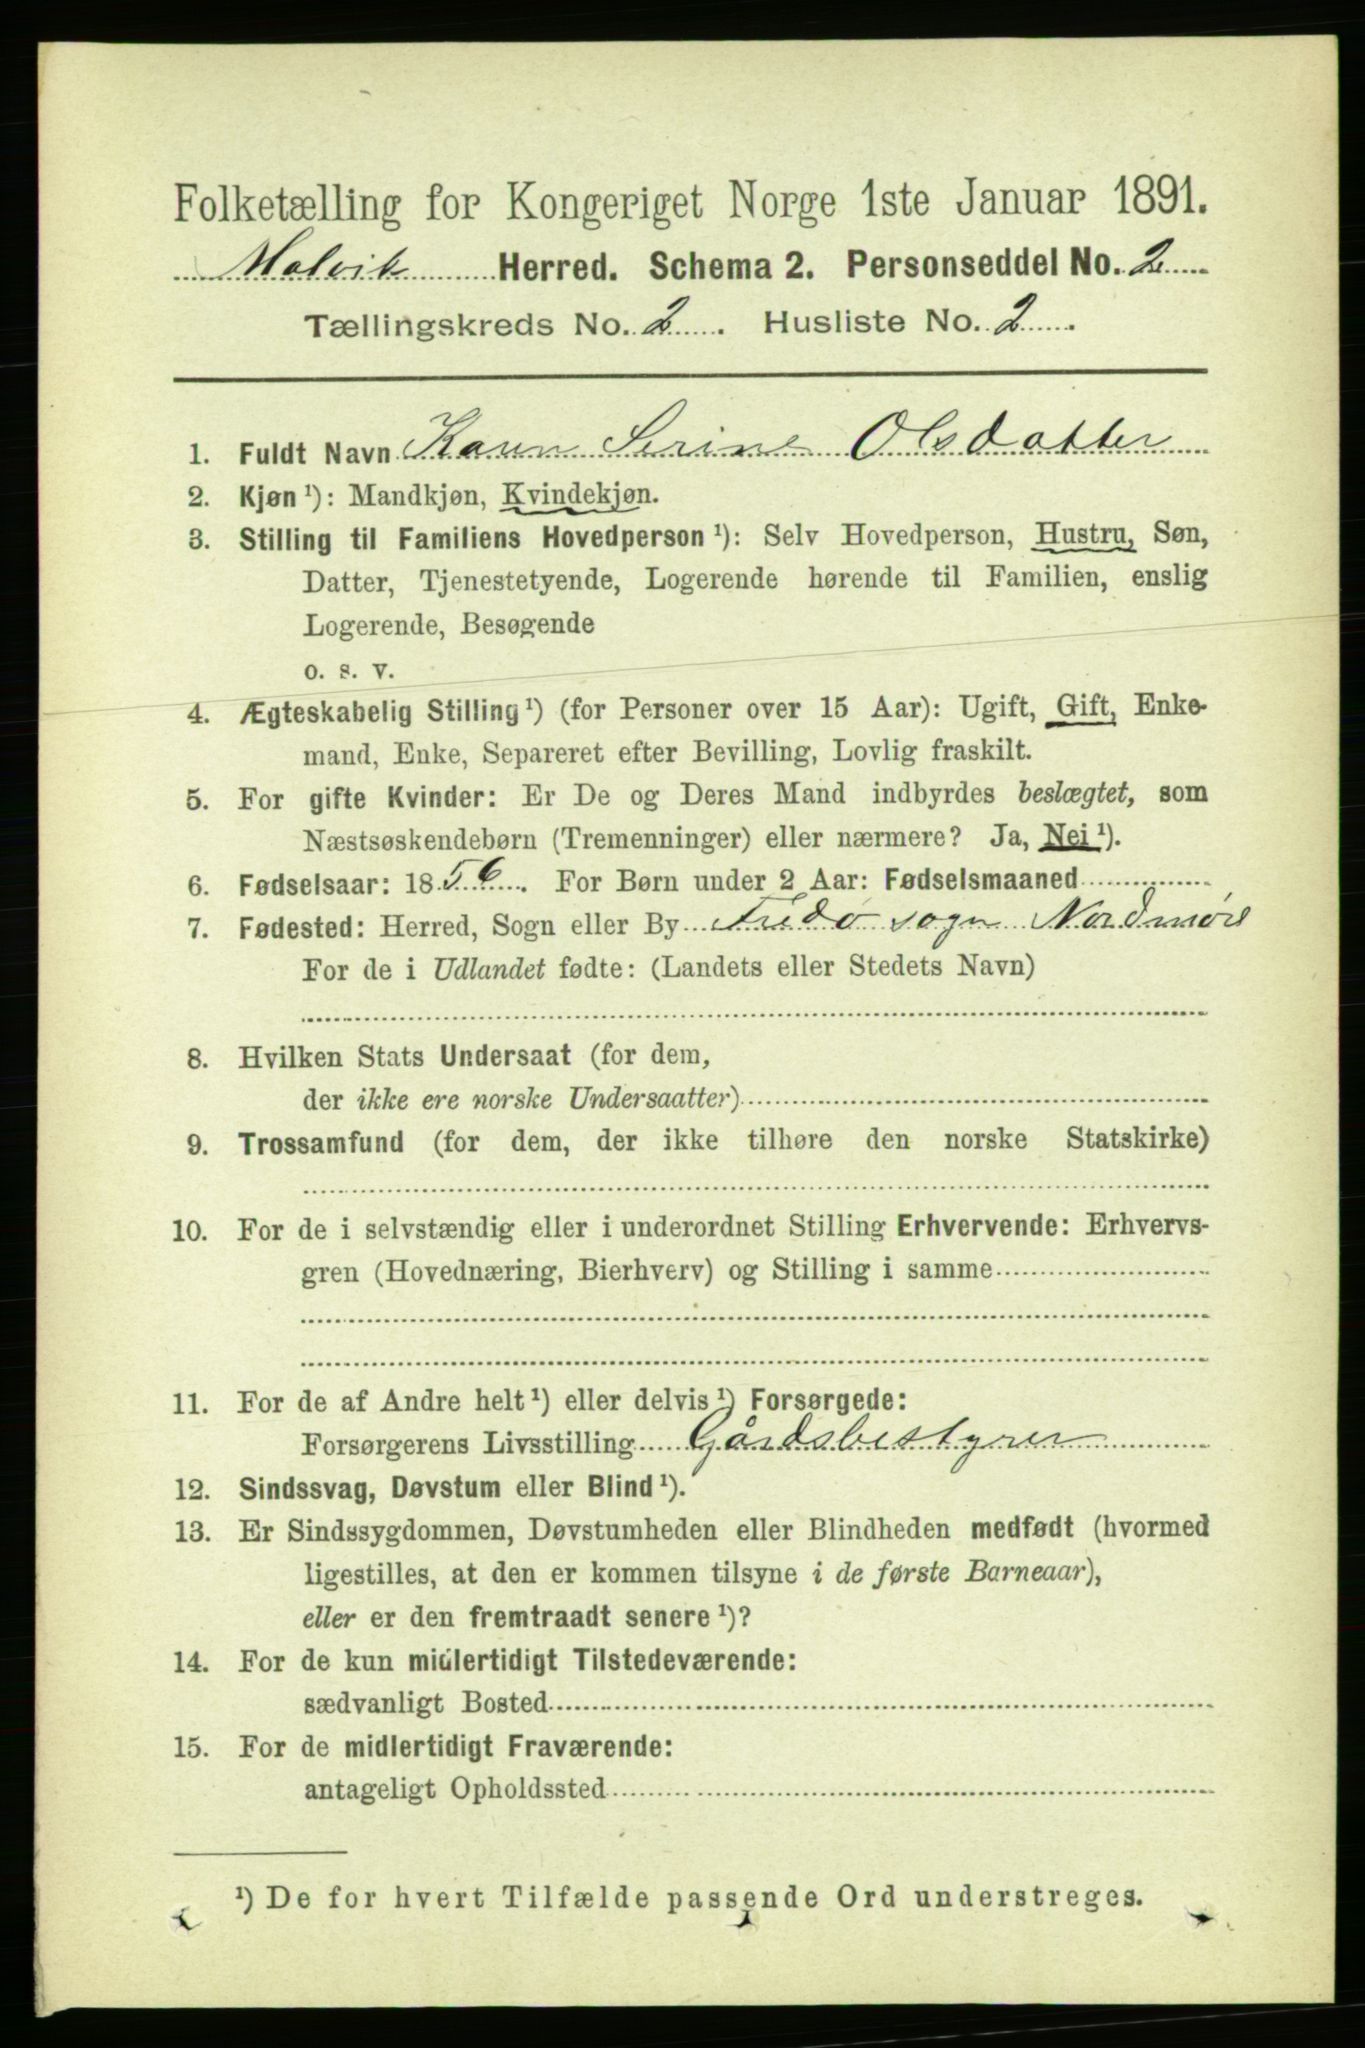 Folketælling for Kongeriget Norge 1ste Januar 1891.
Malvik Herred. Schema 2. Personseddel No. 2
Tællingskreds No. 2. Husliste No. 2.
1. Fuldt Navn Karen Serine Olsdatter
2. Kjøn ¹): Mandkjøn, Kvindekjøn.
3. Stilling til Familiens Hovedperson ¹): Selv Hovedperson, Hustru, Søn,
Datter, Tjenestetyende, Logerende hørende til Familien, enslig
Logerende, Besøgende
o. s. v.
4. Ægteskabelig Stilling ¹) (for Personer over 15 Aar): Ugift, Gift, Enke-
mand, Enke, Separeret efter Bevilling, Lovlig fraskilt.
5. For gifte Kvinder: Er De og Deres Mand indbyrdes beslægtet, som
Næstsøskendebørn (Tremenninger) eller nærmere? Ja, Nei ¹).
6. Fødselsaar: 1856. For Børn under 2 Aar: Fødselsmaaned
7. Fødested: Herred, Sogn eller By Fredø sogn Nordmøre
For de i Udlandet fødte: (Landets eller Stedets Navn)
8. Hvilken Stats Undersaat (for dem,
der ikke ere norske Undersaatter)
9. Trossamfund (for dem, der ikke tilhøre den norske Statskirke)
10. For de i selvstændig eller i underordnet Stilling Erhvervende: Erhvervs-
gren (Hovednæring, Bierhverv) og Stilling i samme
11. For de af Andre helt ¹) eller delvis ¹) Forsørgede:
Forsørgerens Livsstilling Gårdsbestyrer
12. Sindssvag, Døvstum eller Blind ¹).
13. Er Sindssygdommen, Døvstumheden eller Blindheden medfødt (hvormed
ligestilles, at den er kommen tilsyne i de første Barneaar),
eller er den fremtraadt senere ¹)?
14. For de kun midlertidigt Tilstedeværende:
sædvanligt Bosted
15. For de midlertidigt Fraværende:
antageligt Opholdssted
¹) De for hvert Tilfælde passende Ord understreges.